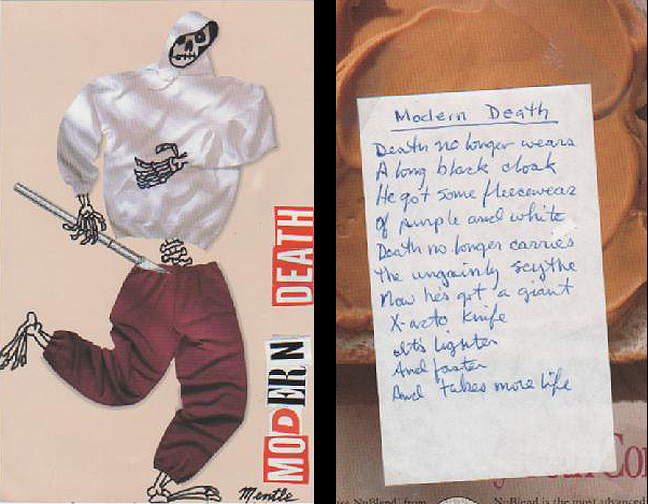 MODERN DEATH
Mentle
Modern Death
Death no longer wears
A long black cloak
He got some fleecewear
Of purple and white
Death no longer carries
The ungainly scythe
Now hes got a giant
X-acto knife
Its lighter
And faster
And takes more life
NuBlend, from
NuBlend is the most advanced